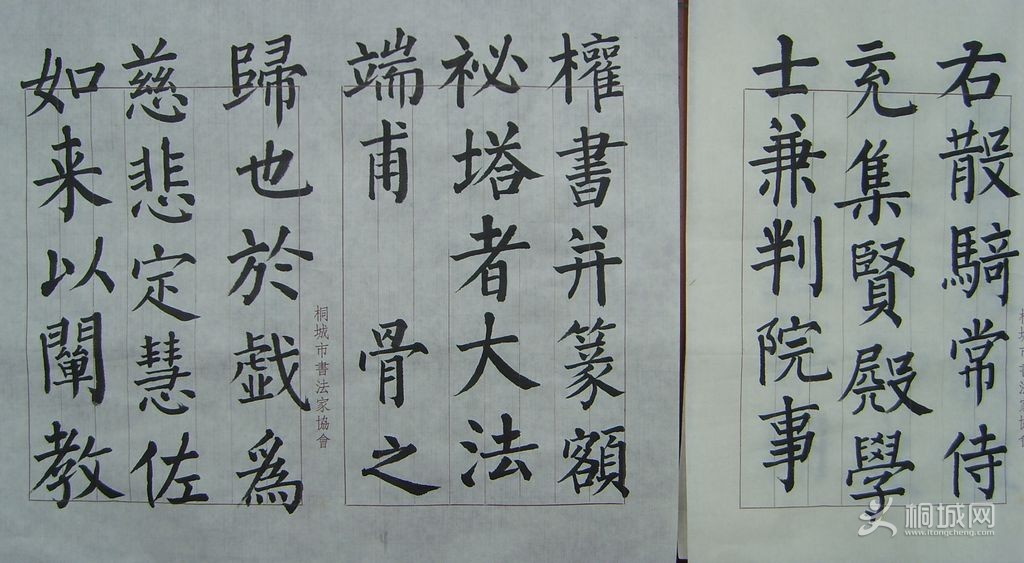 右散騎常侍
充集賢殿學
士兼判院事
權書并篆額
祕塔者大法
端甫骨之
歸也於戯為
慈悲定慧佐
如来以闡教
桐城市書法家協會
桐城市書法家協會
桐城网
www.itongcheng.com